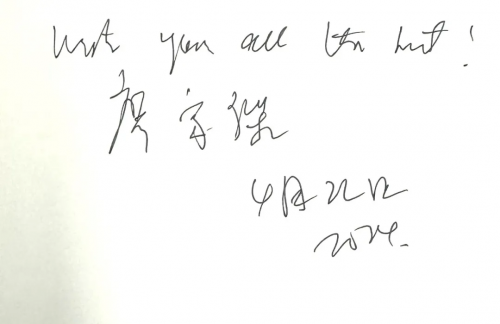 Wish you all the best!
4月22日
2024.